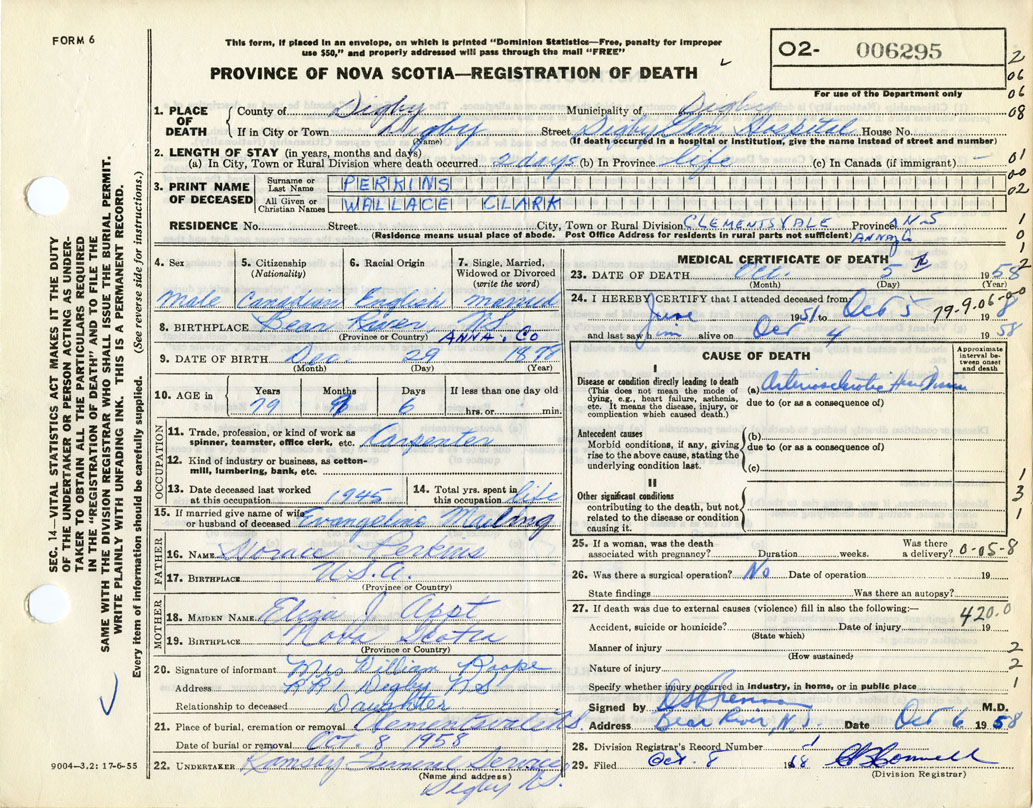 FORM 6
This form, if placed in an envelope, on which is printed "Dominion Statistics—Free, penalty for improper
use $50," and properly addressed will pass through the mail "FREE"
O2- 006295
For use of the Department only
PROVINCE OF NOVA SCOTIA—REGISTRATION OF DEATH
2
06
06
08
1. PLACE OF DEATH
County of Digby Municipality of Digby
If in City or Town Digby Street Digby Gen Hospital House No.
(Name) (If death occurred in a hospital or institution, give the name instead of street and number)
2. LENGTH OF STAY (in years, months and days)
(a) In City, Town or Rural Division where death occurred 2 days (b) In Province life (c) In Canada (if immigrant) -
01
00
02
3. PRINT NAME OF DECEASED
Surname or Last Name PERKINS
All Given or Christian Names WALLACE CLARK
RESIDENCE No. Street City, Town or Rural Division CLEMENTSVALE Province N-S
(Residence means usual place of abode. Post Office Address for residents in rural parts not sufficient) ANNA Co
1
0
1
2
4. Sex
Male
5. Citizenship (Nationality)
Canadian
6. Racial Origin
English
7. Single, Married, Widowed or Divorced (write the word)
married
8. BIRTHPLACE Bear River, N.S
(Province or Country) ANNA, Co
9. DATE OF BIRTH Dec. 29 1878
(Month) (Day) (Year)
10. AGE in
Years Months Days If less than one day old
79 9 6 hrs. or min.
OCCUPATION
11. Trade, profession, or kind of work as
spinner, teamster, office clerk, etc. Carpenter
12. Kind of industry or business, as cotton-
mill, lumbering, bank, etc.
13. Date deceased last worked
at this occupation 1945
14. Total yrs. spent in
this occupation life
15. If married give name of wife
or husband of deceased Evangeline
FATHER
16. NAME Perkins
17. BIRTHPLACE U.S.A.
(Province or Country)
MOTHER
18. MAIDEN NAME Eliza J.
19. BIRTHPLACE Nova Scotia
(Province or Country)
20. Signature of informant Mrs William Roope
Address RR1 Digby NS
Relationship to deceased Daughter
21. Place of burial, cremation or removal
Date of burial or removal Oct. 8 1958
22. UNDERTAKER Funeral Service
(Name and address)
Digby N.S.
MEDICAL CERTIFICATE OF DEATH
23. DATE OF DEATH Oct. 5 1958
(Month) (Day) (Year)
24. I HEREBY CERTIFY that I attended deceased from
June 1951 to Oct 5 1958
79-9.06-00
and last saw him alive on Oct 4 1958
CAUSE OF DEATH
Approximate interval between onset and death
I
Disease or condition directly leading to death
(This does not mean the mode of
dying, e.g., heart failure, asthenia,
etc. It means the disease, injury, or
complication which caused death.)
(a) Arteriosclerotic Heart Disease
due to (or as a consequence of)
Antecedent causes
Morbid conditions, if any, giving
rise to the above cause, stating the
underlying condition last.
(b)
due to (or as a consequence of)
(c)
II
Other significant conditions
contributing to the death, but not
related to the disease or condition
causing it.
1
3
1
25. If a woman, was the death
associated with pregnancy? Duration weeks. Was there a delivery? 0-05-8
26. Was there a surgical operation? No Date of operation 19
State findings Was there an autopsy?
27. If death was due to external causes (violence) fill in also the following:—
420.0
Accident, suicide or homicide? Date of injury 19
(State which)
Manner of injury 2
(How sustained)
Nature of injury 2
Specify whether injury occurred in industry, in home, or in public place 1
Signed by M.D.
Address Bear River, N.S Date Oct 6 1958
28. Division Registrar's Record Number
29. Filed Oct. 8 1958
(Division Registrar)
SEC. 14—VITAL STATISTICS ACT MAKES IT THE DUTY
OF THE UNDERTAKER OR PERSON ACTING AS UNDER-
TAKER TO OBTAIN ALL THE PARTICULARS REQUIRED
IN THE "REGISTRATION OF DEATH" AND TO FILE THE
SAME WITH THE DIVISION REGISTRAR WHO SHALL ISSUE THE BURIAL PERMIT.
WRITE PLAINLY WITH UNFADING INK. THIS IS A PERMANENT RECORD.
Every item of information should be carefully supplied. (See reverse side for instructions.)
9004—3.2: 17-6-55